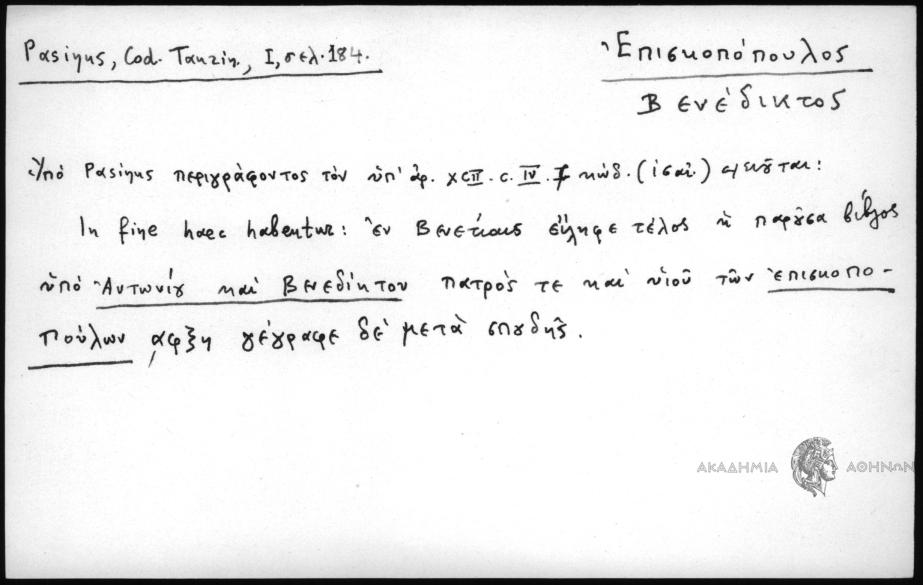 Pasinus, Cod. Taurin., I, σελ. 184.
Ἐπισκοπόπουλος
Βενέδικτος
Ὑπό Pasinus περιγράφοντος τὸν ὑπ' ἀρ. XCII. c. IV. κώδ. (ἰσαι.) σημειοῦται:
In fine haec habentur: ἐν Βενετίαις εἴληφε τέλος ἡ παροῦσα βίβλος
ὑπό Ἀντωνίου καί Βενεδίκτου πατρός τε καί υἱοῦ τῶν ἐπισκοπο-
πούλων ͵αφξη γέγραφε δέ μετὰ σπουδῆς.
ΑΚΑΔΗΜΙΑ ΑΘΗΝΩΝ